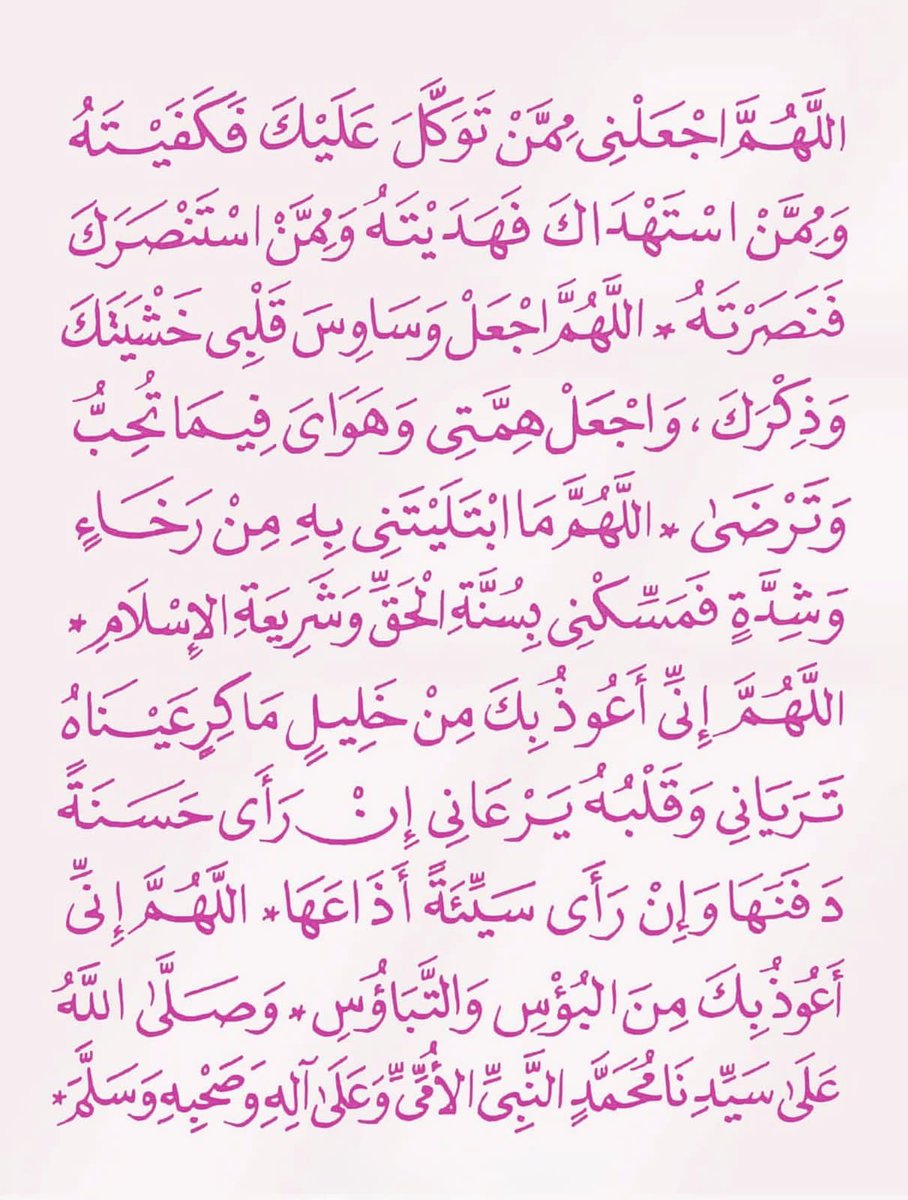 اللَّهُمَّ اجْعَلْنِى مِمَّنْ تَوَكَّلَ عَلَيْكَ فَكَفَيْتَهُ
وَمِمَّنْ اسْتَهْدَاكَ فَهَدَيْتَهُ وَمِمَّنْ اسْتَنْصَرَكَ
فَنَصَرْتَهُ * اللَّهُمَّ اجْعَلْ وَسَاوِسَ قَلْبِى خَشْيَتَكَ
وَذِكْرَكَ ، وَاجْعَلْ هِمَّتِى وَهَوَاىَ فِيمَا تُحِبُّ
وَتَرْضَىٰ * اللَّهُمَّ مَا ابْتَلَيْتَنِى بِهِ مِنْ رَخَاءٍ
وَشِدَّةٍ فَمَسِّكْنِى بِسُنَّةِ الْحَقِّ وَشَرِيعَةِ الإِسْلَامِ *
اللَّهُمَّ إِنِّى أَعُوذُ بِكَ مِنْ خَلِيلٍ مَاكِرٍ عَيْنَاهُ
تَرَيَانِي وَقَلْبُهُ يَرْعَانِي إِنْ رَأَى حَسَنَةً
دَفَنَهَا وَإِنْ رَأَى سَيِّئَةً أَذَاعَهَا * اللَّهُمَّ إِنِّى
أَعُوذُ بِكَ مِنَ البُؤْسِ وَالتَّبَاؤُسِ * وَصَلَّىٰ اللَّهُ
عَلَىٰ سَيِّدِنَا مُحَمَّدٍ النَّبِىِّ الأُمِّىِّ وَعَلَىٰ آلِهِ وَصَحْبِهِ وَسَلَّمَ *